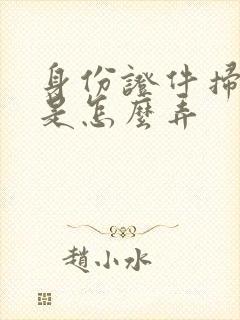 身份證件掃
是怎麼弄
趙小水